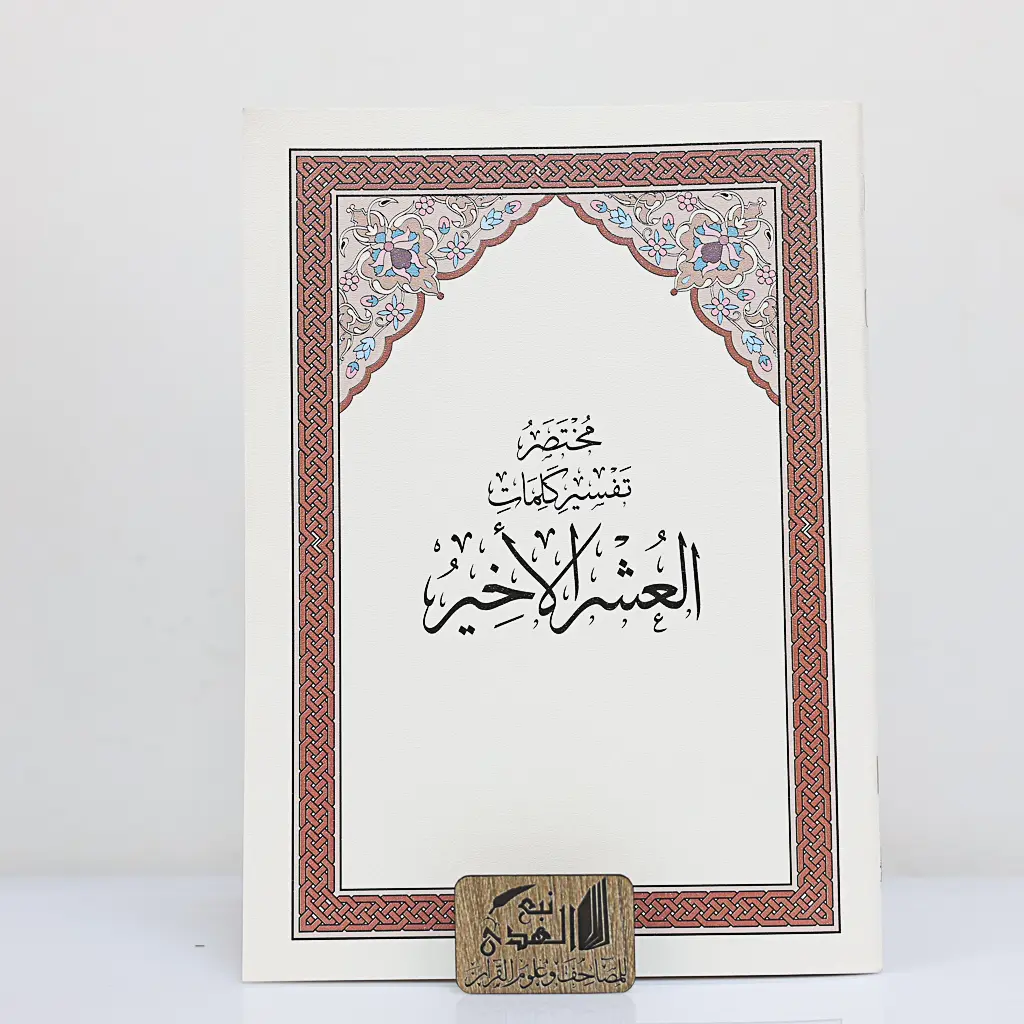 مُخْتَصَرُ
تَفْسِيرِ كَلِمَاتِ
العُشْرِ الأَخِيرُ
نبع
الهدى
للمصاحف وعلوم القرآن